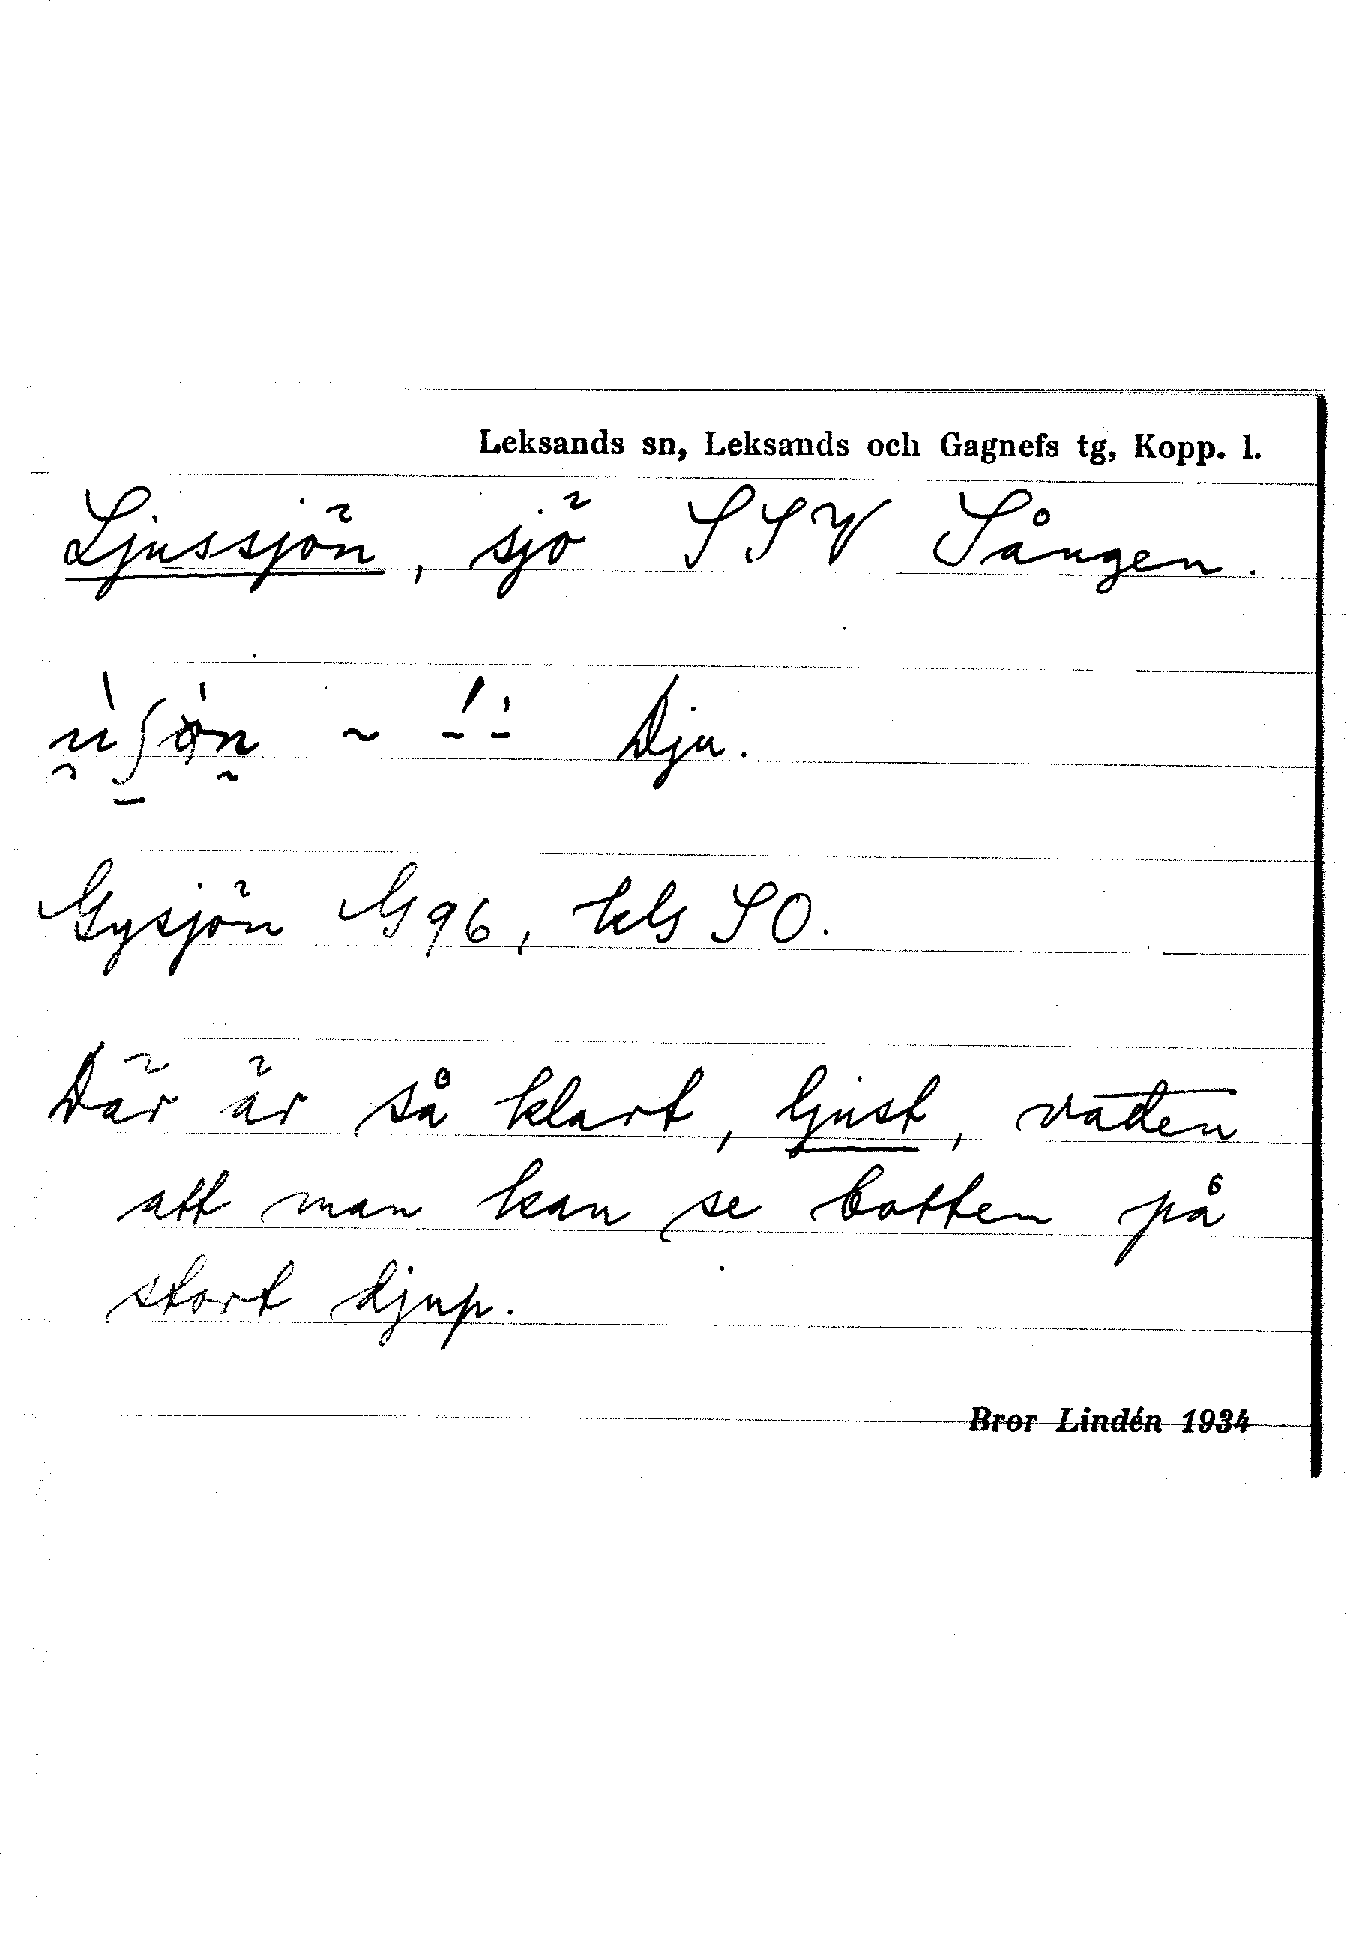 Leksands sn, Leksands och Gagnefs tg, Kopp. l.
Ljussjön, sjö SSV Sången.
Dju.
Gysjön G96, kls SO.
Där är så klart, ljust, vatten
att man kan se botten på
stort djup.
Bror Lindén 1934